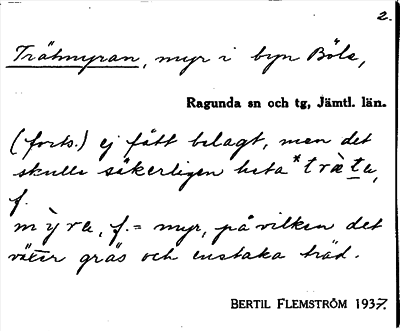 2.
Trätmyran, myr i byn Böle,
Ragunda sn och tg, Jämtl. län.
(forts.) ej fått belagt, men det
skulle säkerligen heta *träta,
f.
mỳra, f. = myr, på vilken det
växer gräs och enstaka träd.
BERTIL FLEMSTRÖM 1937.